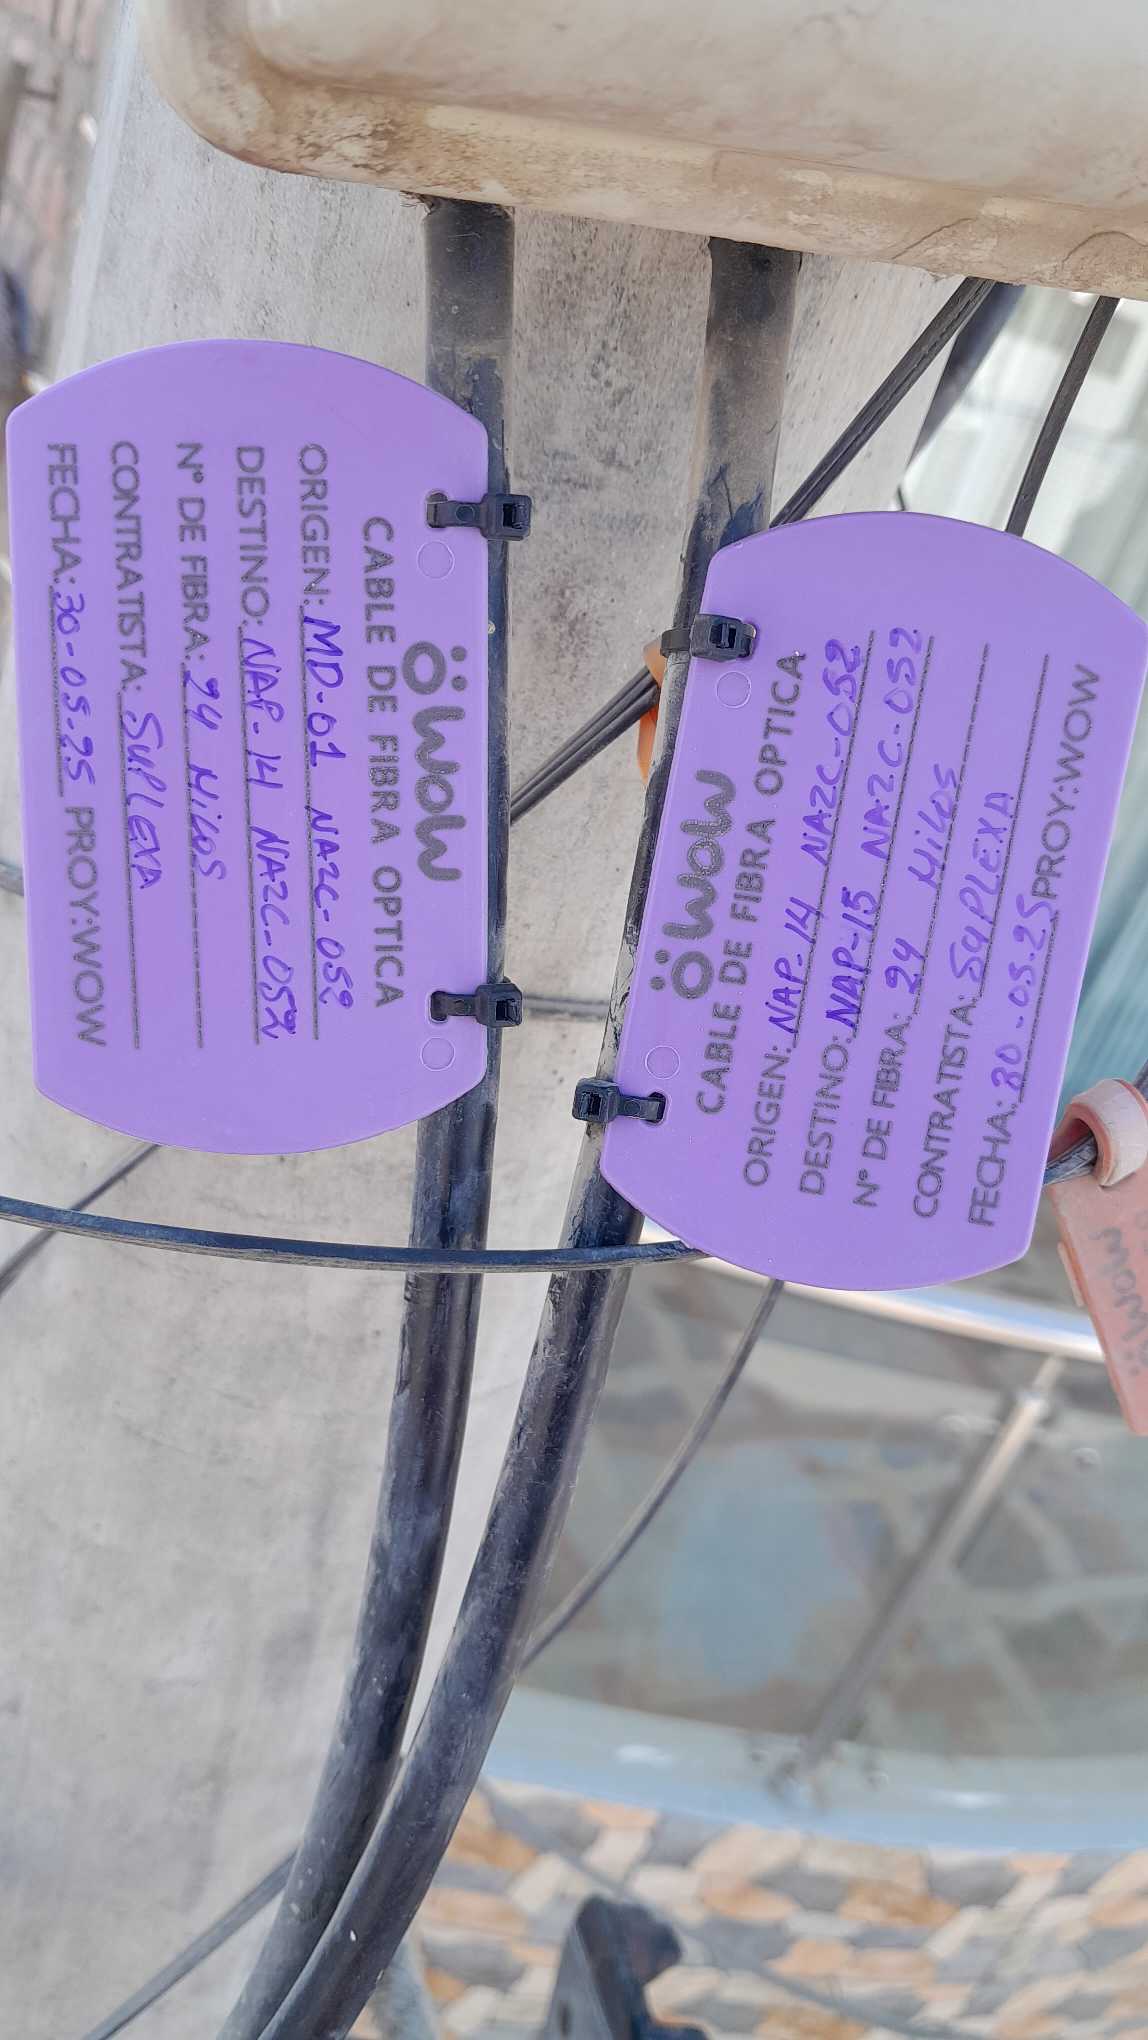 wow
CABLE DE FIBRA OPTICA
ORIGEN: MD-01 NAZC-052
DESTINO: NAP-14 NAZC-052
N° DE FIBRA: 24 Hilos
CONTRATISTA: SuPlEXA
FECHA: 30-05-25 PROY:WOW
wow
CABLE DE FIBRA OPTICA
ORIGEN: NAP-14 NAZC-052
DESTINO: NAP-15 NAZC-052
N° DE FIBRA: 24 Hilos
CONTRATISTA: SuPLEXA
FECHA: 30-05-25 PROY:WOW
wow